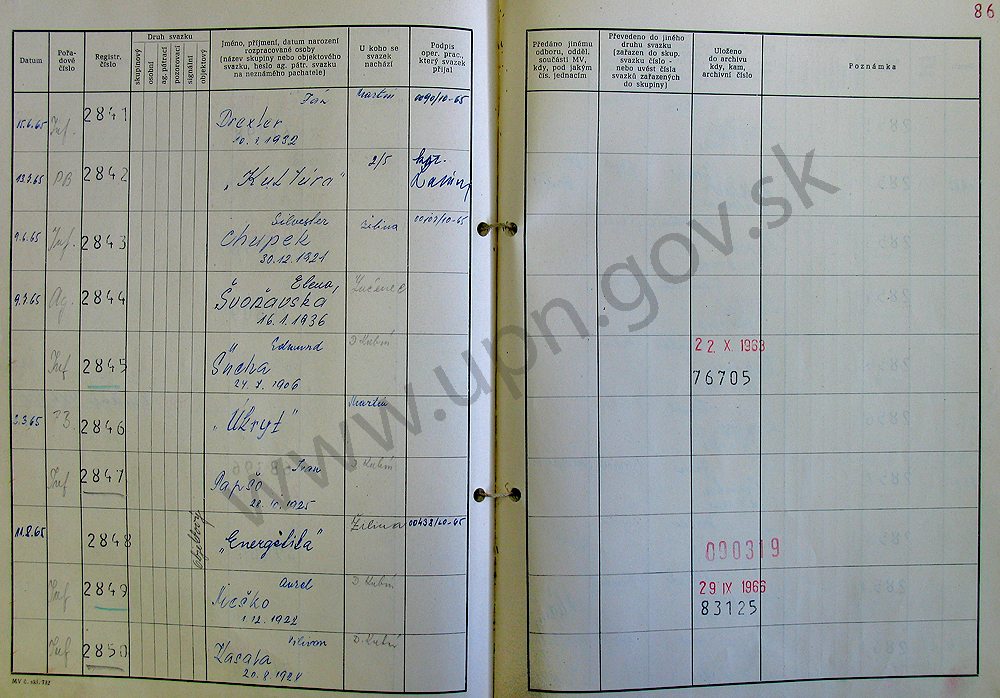 86
Datum
Pořa-
dové
číslo
Registr.
číslo
Druh svazku
skupinový
osobní
ag. pátrací
pozorovací
signální
objektový
Jméno, příjmení, datum narození
rozpracované osoby
(název skupiny nebo objektového
svazku, heslo ag. pátr. svazku
na neznámého pachatele)
U koho se
svazek
nachází
Podpis
oper. prac.,
který svazek
přijal
Předáno jinému
odboru, odděl.
součásti MV,
kdy, pod jakým
čís. jednacím
Převedeno do jiného
druhu svazku
(zařazen do skup.
svazku číslo -
nebo uvést čísla
svazků zařazených
do skupiny)
Uloženo
do archivu
kdy, kam,
archivní číslo
Poznámka
15.6.65 Inf. 2841 Ján Martin 0090/10-65
Drexler
10.1.1932
PB 2842 „Kultúra" 2/5
9.6.65 Inf. 2843 Silvester Žilina
Chupek
30.12.1921
9.7.65 Ag. 2844 Elena, Lučenec
16.1.1936
Inf 2845 Edmund D Kubín 22. X. 1968
1906 76705
2.3.65 2846 „Úkryt" Martin
Inf 2847 Ivan D Kubín
Papšo
1925
11.8.65 2848 objektový „Energetika" Žilina 00438/20-65 000319
Inf 2849 Aurel D Kubín 29 IX 1966
1.12.1922 83125
Inf 2850 D. Kubín
Kasala
20.8.1928
MV č. skl. 782
www.upn.gov.sk